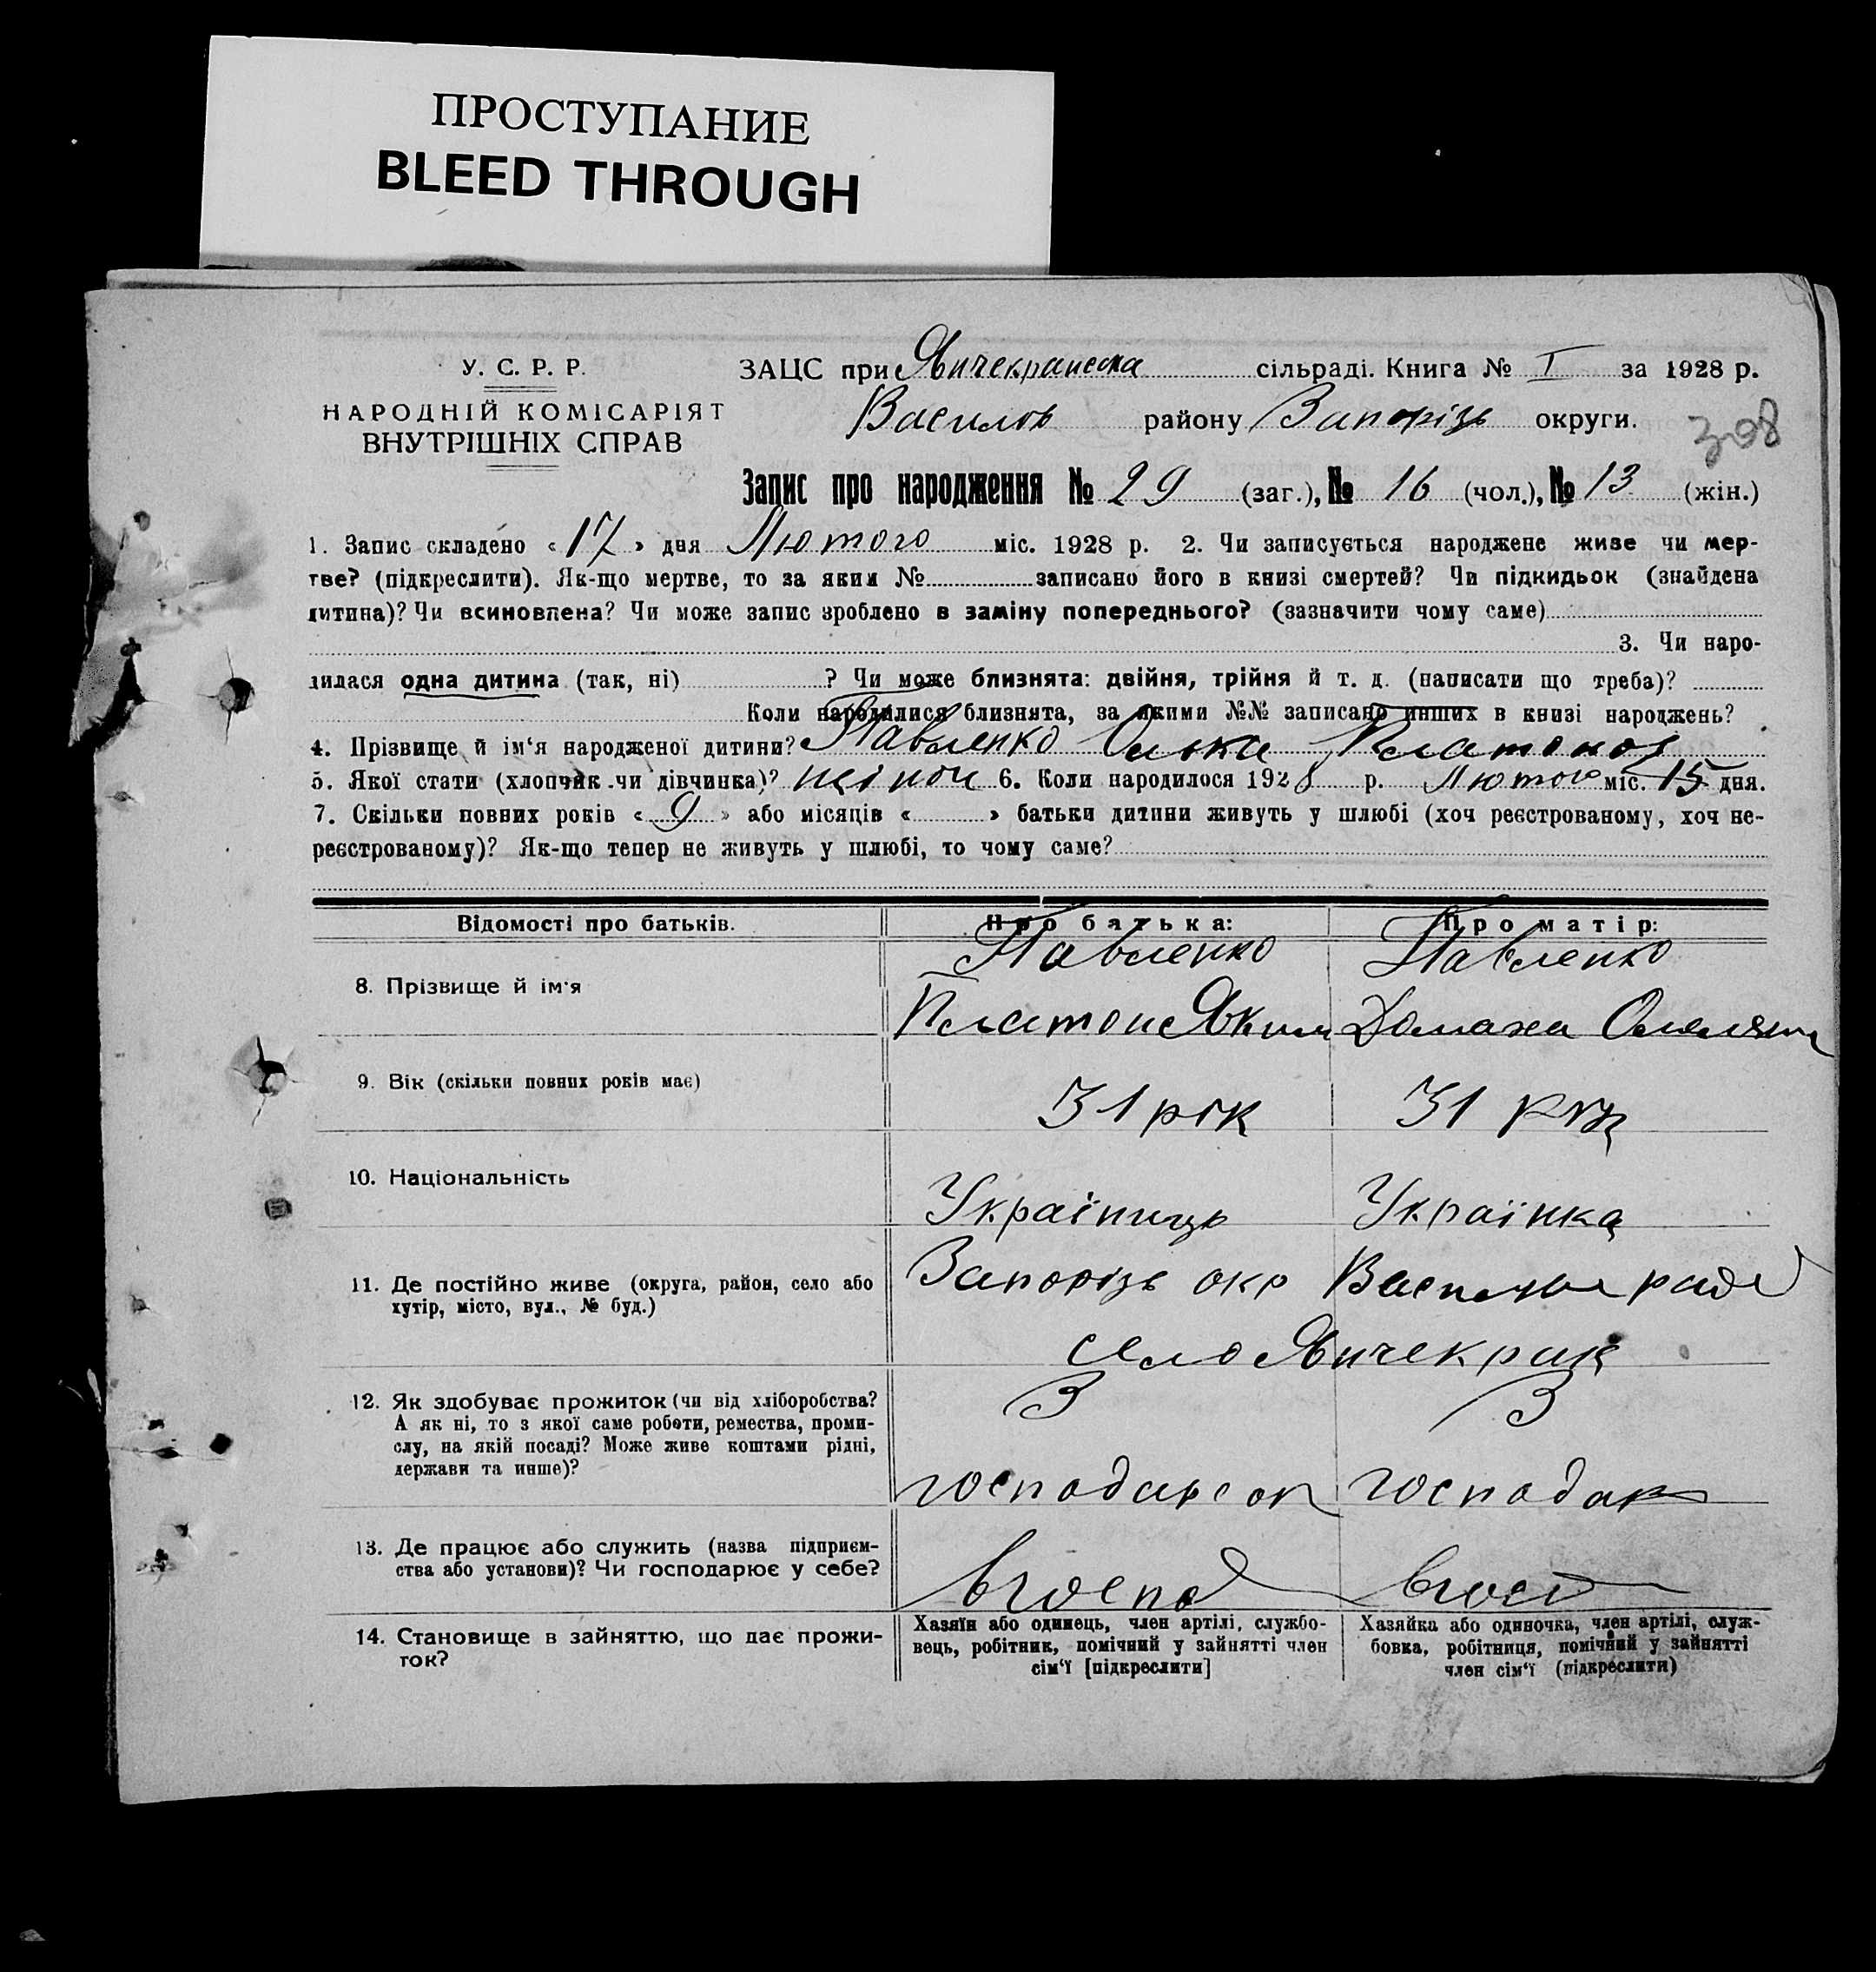 ПРОСТУПАНИЕ
BLEED THROUGH
У. С. Р. Р.
НАРОДНІЙ КОМІСАРІЯТ
ВНУТРІШНІХ СПРАВ
ЗАЦС при Янчекракська сільраді. Книга № I за 1928 р.
Василів району Запорізь округи.
308
Запис про народження № 29 (заг.), № 16 (чол.), № 13 (жін.)
1. Запис складено « 17 » дня Лютого міс. 1928 р. 2. Чи записується народжене живе чи мер-
тве? (підкреслити). Як-що мертве, то за яким № записано його в книзі смертей? Чи підкидьок (знайдена
дитина)? Чи всиновлена? Чи може запис зроблено в заміну попереднього? (зазначити чому саме)
3. Чи наро-
дилася одна дитина (так, ні) ? Чи може близнята: двійня, трійня й т. д. (написати що треба)?
Коли народилися близнята, за якими №№ записано инших в книзі народжень?
4. Прізвище й ім‘я народженої дитини? Павленко Олька Платонов
5. Якої стати (хлопчик чи дівчинка)? жіноч 6. Коли народилося 1928 р. Лютого міс. 15 дня.
7. Скільки повних років « 9 » або місяців « » батьки дитини живуть у шлюбі (хоч реєстрованому, хоч не-
реєстрованому)? Як-що тепер не живуть у шлюбі, то чому саме?
Відомості про батьків. Про батька: Про матір:
Павленко Павленко
8. Прізвище й ім‘я
Платон Яким Домаха Омелян
9. Вік (скільки повних років має)
31 рік 31 рік
10. Національність
Україниць Українка
11. Де постійно живе (округа, район, село або
хутір, місто, вул., № буд.)
Запорізь окр Василів район
село Янчекрак
12. Як здобуває прожиток (чи від хліборобства?
А як ні, то з якої саме роботи, ремества, проми-
слу, на якій посаді? Може живе коштами рідні,
держави та инше)?
З З
господарсот господар
13. Де працює або служить (назва підприєм-
ства або установи)? Чи господарює у себе?
в госпо в госп
14. Становище в зайняттю, що дає прожи-
ток?
Хазяїн або одинець, член артілі, службо-
вець, робітник, помічний у зайнятті член
сім‘ї [підкреслити]
Хазяйка або одиночка, член артілі, служ-
бовка, робітниця, помічний у зайнятті
член сім‘ї (підкреслити)